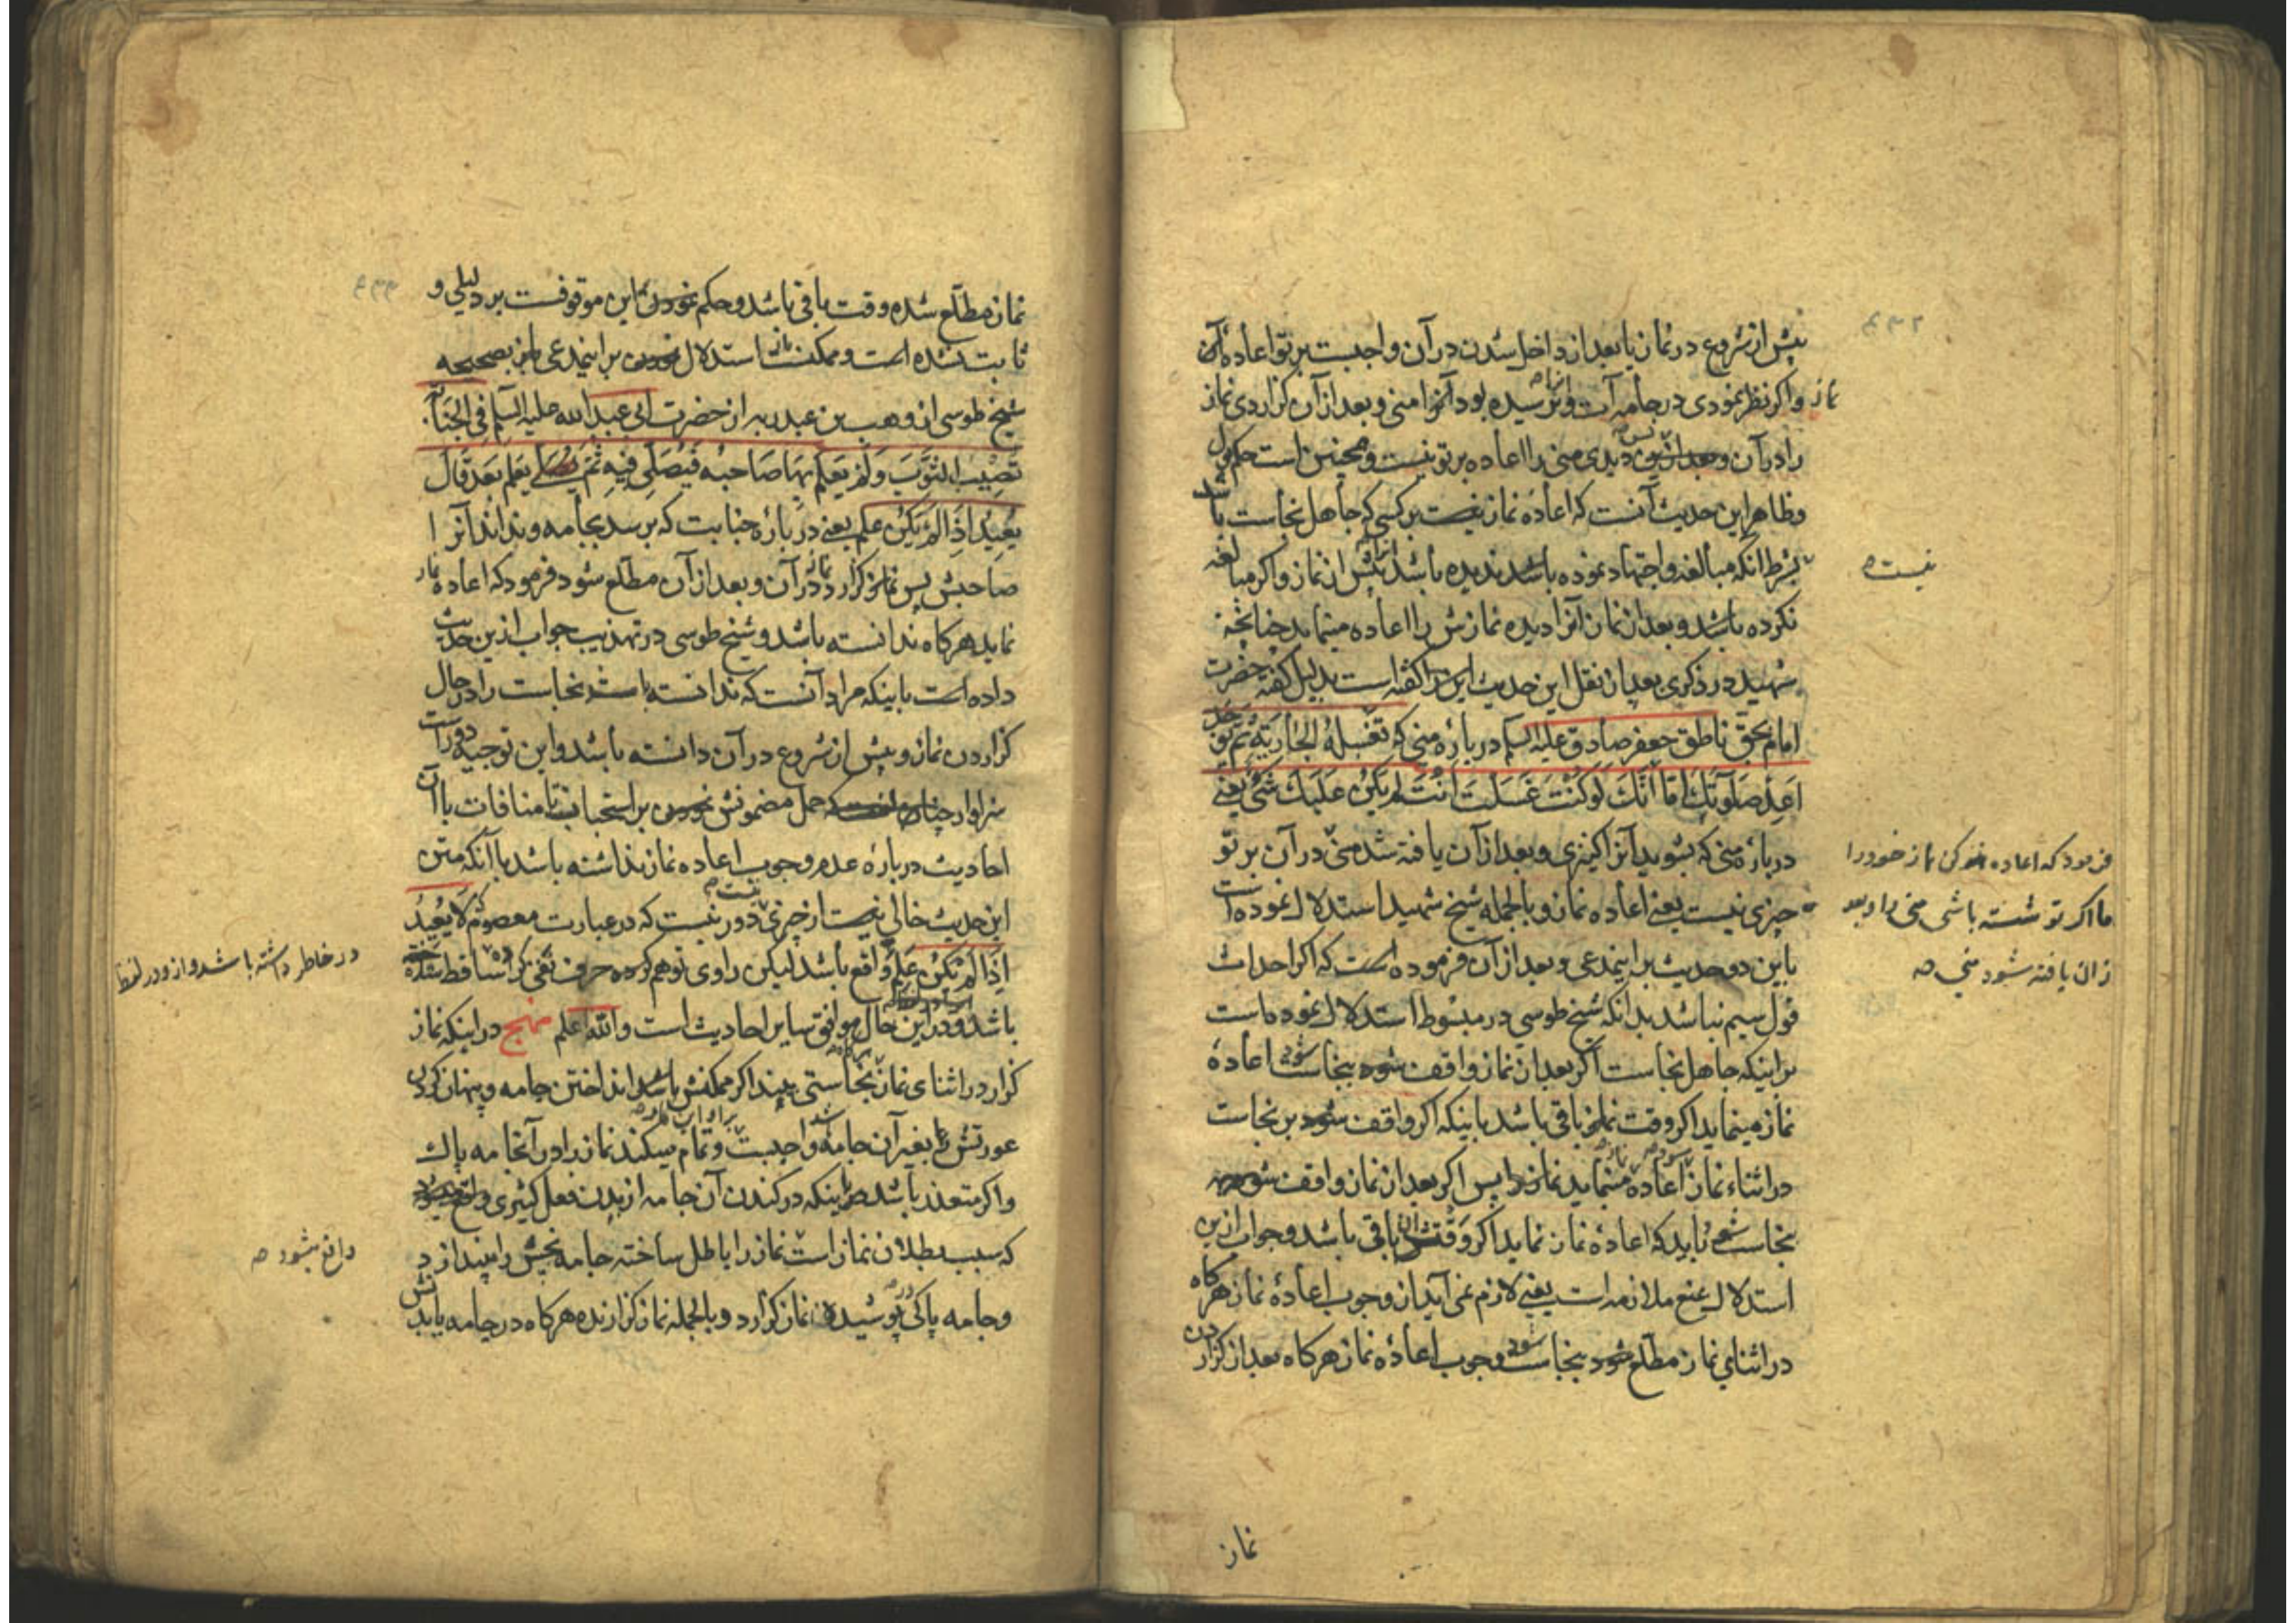 ۴۳۲
پیش از شروع در نماز یا بعد از داخل شدن در آن واجبست بر تو اعادهٔ آن
نماز و اگر نظر نمودی در جامه ات و نرسیده بود آنرا منی و بعد از آن گزاردی نماز
را در آن و بعد از آن دیدی منی را اعاده بر تو نیست و همچنین است حکم بول
و ظاهر این حدیث آنست که اعادهٔ نماز نیست بر کسی که جاهل نجاست باشد
بشرط آنکه مبالغه و اجتهاد نموده باشد ندیده باشد پیش از نماز و اگر مبالغه
نیست
نکرده باشد و بعد از نماز آنرا دیده نمازش را اعاده مینماید چنانچه
شهید در ذکری بعد از نقل این حدیث این را گفته است بدلیل گفتهٔ حضرت
امام بحق ناطق جعفر صادق علیه السلم در بارهٔ منی که تغسله الجاریة ثم توجد
اعد صلوتک اما انک لو کنت غسلت انت لم یکن علیک شئ یعنی
در بارهٔ منی که بشوید آنرا کنیزی و بعد از آن یافته شد منی در آن بر تو
فرمود که اعاده کن نماز خود را
اما اگر تو شسته باشی منی را و بعد
از آن یافته شود منی صه
چیزی نیست یعنی اعاده نماز و بالجمله شیخ شهید استدلال نموده است
باین دو حدیث بر اینمدعی و بعد از آن فرموده است که اگر احداث
قول سیم نباشد بدانکه شیخ طوسی در مبسوط استدلال نموده است
بر اینکه جاهل نجاست اگر بعد از نماز واقف شود بنجاست اعادهٔ
نماز مینماید اگر وقت نماز باقی باشد باینکه اگر واقف شود بر نجاست
در اثناء نماز اعاده مینماید نماز را پس اگر بعد از نماز واقف شود
نجاست باید که اعادهٔ نماز نماید اگر وقتش باقی باشد و جواب ازین
استدلال بمنع ملازمه است یعنی لازم نمی آید از وجوب اعادهٔ نماز هرگاه
در اثنای نماز مطلع شود بنجاست وجوب اعادهٔ نماز هرگاه بعد از گزاردن
نماز
۴۳۳
نماز مطلع شده وقت باقی باشد و حکم نمودن باین موقوفست بر دلیلی و
ثابت نشده است و ممکنست استدلال نمودن بر اینمدعی بصحیحه
شیخ طوسی از وهب بن عبد ربه از حضرت ابی عبد الله علیه السلم فی الجنابة
تصیب الثوب و لم یعلم بها صاحبه فیصلی فیه ثم یعلم بعد قال
یعید اذا لم یکن علم یعنی در بارهٔ جنابت که برسد بجامه و نداند آنرا
صاحبش پس نماز گزارد در آن و بعد از آن مطلع شود فرمود که اعاده نماز
نماید هرگاه ندانسته باشد و شیخ طوسی در تهذیب جواب ازین حدیث
داده است باینکه مراد آنست که ندانسته باشد نجاست را در حال
گزاردن نماز و پیش از شروع در آن دانسته باشد و این توجیه دور است
سزاوار چنان است که حمل مضمونش نمودن بر استحباب تا منافات با آن
احادیث در بارهٔ عدم وجوب اعاده نماز نداشته باشد با آنکه متن
این حدیث خالی نیست از چیزی دور نیست که در عبارت معصوم لا یعید
اذا لم یکن علم واقع باشد لیکن راوی توهم کرده حرف نفی را ساقط
در خاطر داشته باشد و از و در لفظ
باشد و در این حال موافق سایر احادیث است والله اعلم منهج در اینکه نماز
گزار در اثنای نماز نجاستی بیند اگر ممکنش باشد انداختن جامه و پنهان کردن
عورتش بغیر آن جامه واجبست و تمام میکند نماز را در آنجامه پاک
و اگر متعذر باشد باینکه در کندن آن جامه از بدن فعل کثیری
واقع بشود صه
که سبب بطلان نماز است نماز را باطل ساخته جامه نجس را بیندازد
و جامه پاکی پوشیده نماز گزارد و بالجمله نماز گزارنده هرگاه در جامه یا بدنش